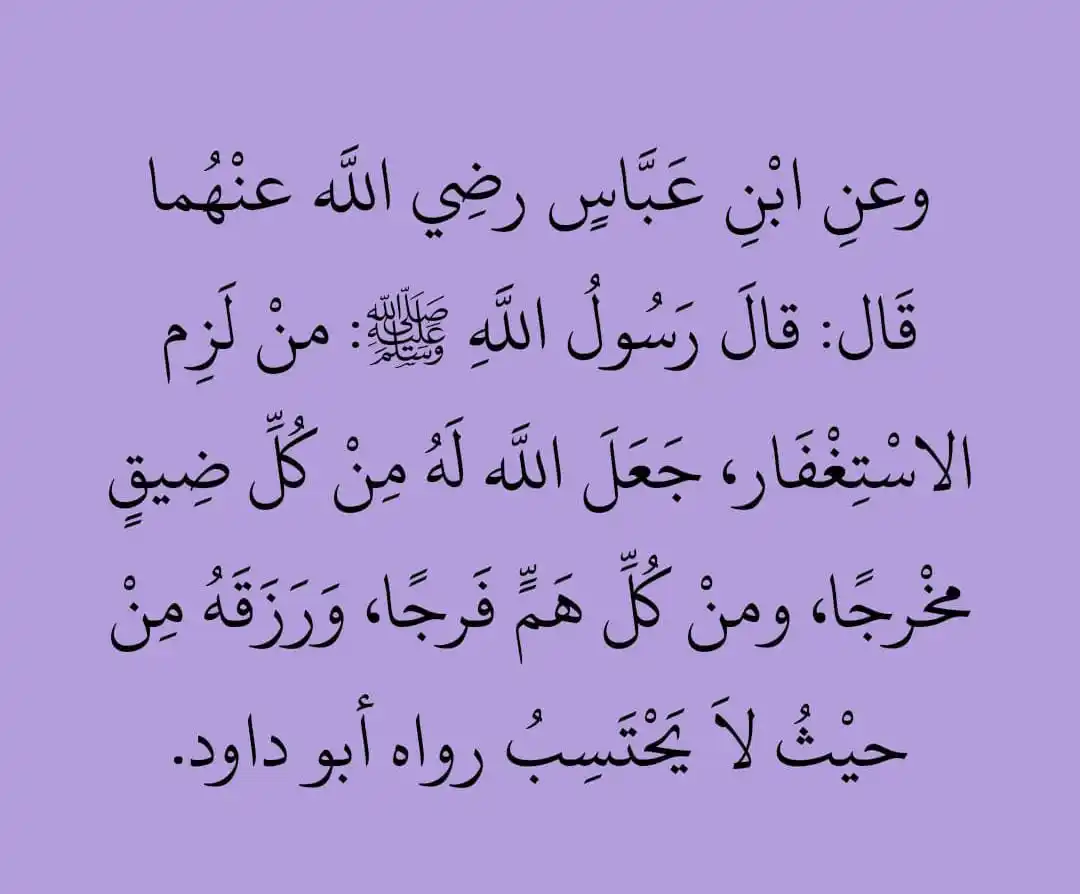 وعنِ ابْنِ عَبَّاسٍ رضِي اللَّه عنْهُما
قَال: قالَ رَسُولُ اللَّهِ ﷺ: منْ لَزِم
الاسْتِغْفَار، جَعَلَ اللَّه لَهُ مِنْ كُلِّ ضِيقٍ
مخْرجًا، ومنْ كُلِّ هَمٍّ فَرجًا، وَرَزَقَهُ مِنْ
حيْثُ لاَ يَحْتَسِبُ رواه أبو داود.